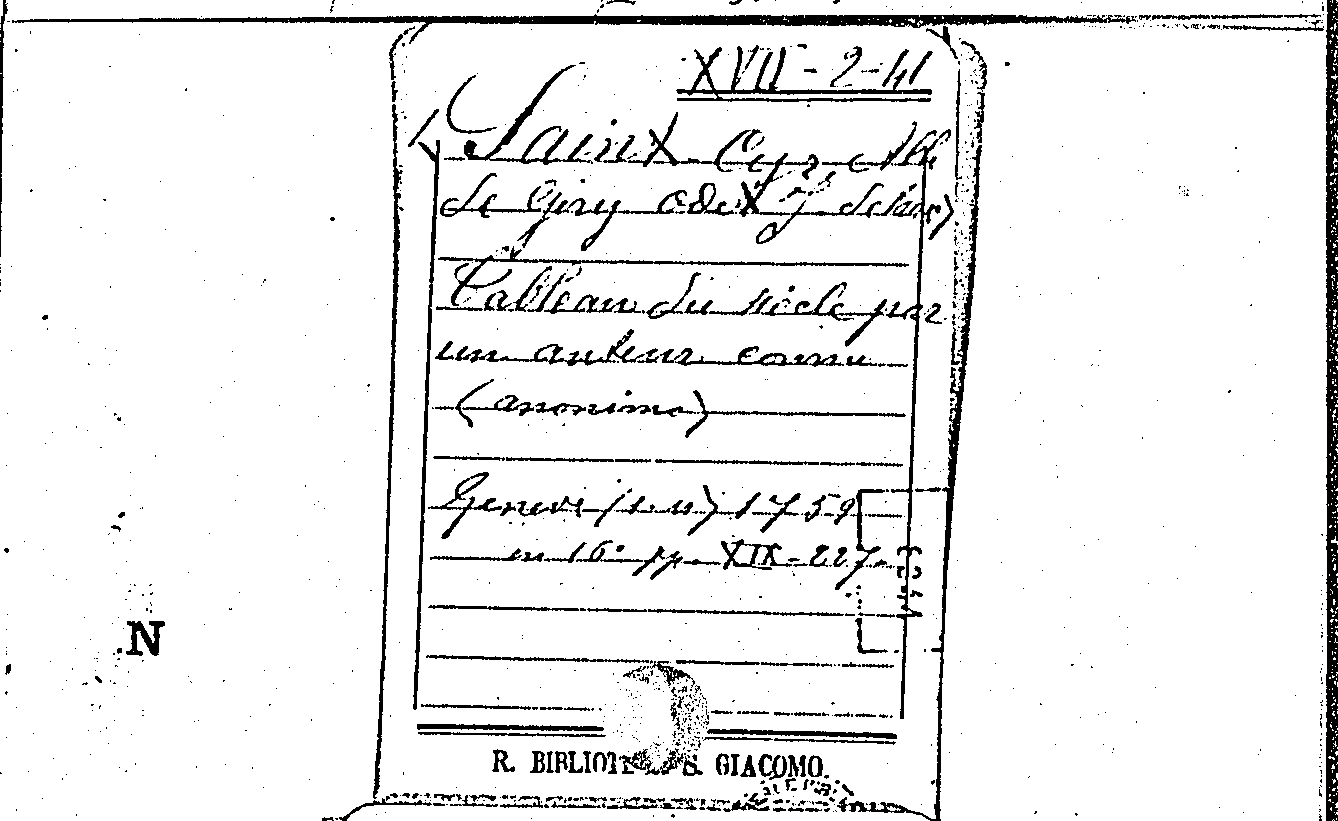 XVII-2-41
Saint-Cyr, Ab.
de Giry Odet J. de
Tableau du siècle par
un auteur connu
(anonimo)
Geneve (s. n.) 1759
in 16° pp. XIX-227.
N
R. BIBLIOTE S. GIACOMO.